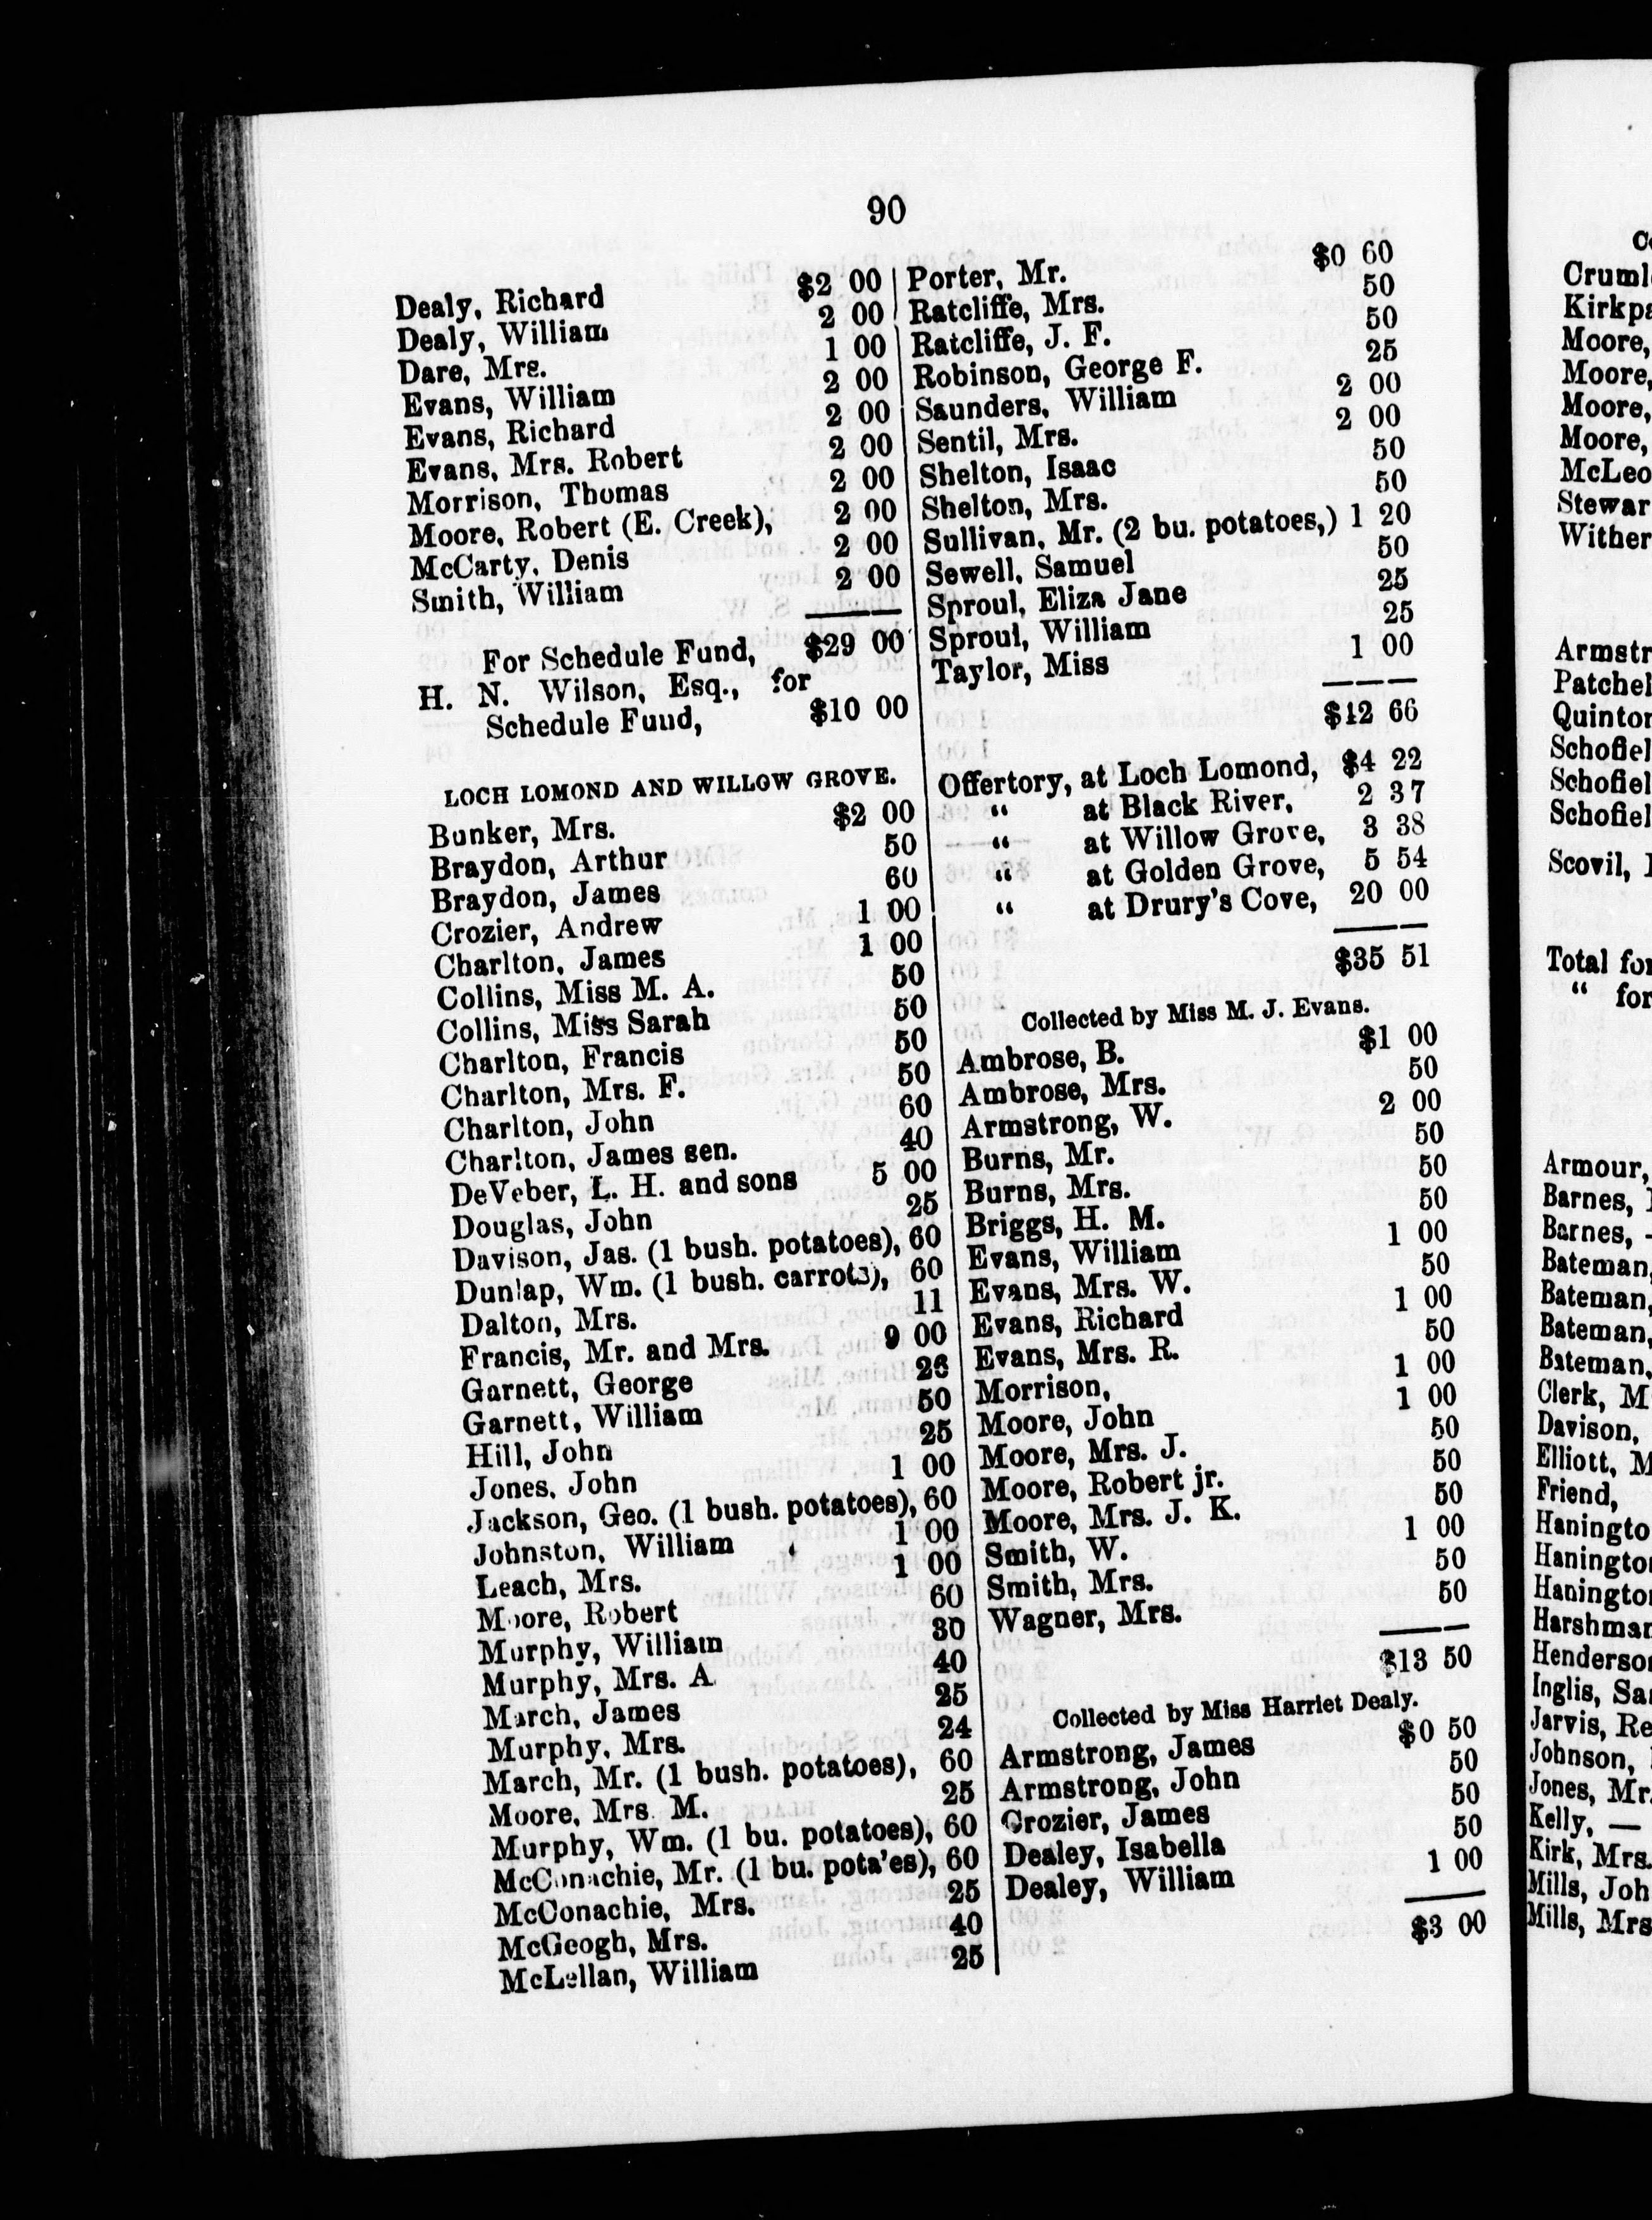 90
Dealy, Richard $2 00
Dealy, William 2 00
Dare, Mrs. 1 00
Evans, William 2 00
Evans, Richard 2 00
Evans, Mrs. Robert 2 00
Morrison, Thomas 2 00
Moore, Robert (E. Creek), 2 00
McCarty, Denis 2 00
Smith, William 2 00
For Schedule Fund, $29 00
H. N. Wilson, Esq., for
Schedule Fund, $10 00
LOCH LOMOND AND WILLOW GROVE.
Bunker, Mrs. $2 00
Braydon, Arthur 50
Braydon, James 60
Crozier, Andrew 1 00
Charlton, James 1 00
Collins, Miss M. A. 50
Collins, Miss Sarah 50
Charlton, Francis 50
Charlton, Mrs. F. 50
Charlton, John 60
Charlton, James sen. 40
DeVeber, L. H. and sons 5 00
Douglas, John 25
Davison, Jas. (1 bush. potatoes), 60
Dunlap, Wm. (1 bush. carrots), 60
Dalton, Mrs. 11
Francis, Mr. and Mrs. 9 00
Garnett, George 26
Garnett, William 50
Hill, John 25
Jones, John 1 00
Jackson, Geo. (1 bush. potatoes), 60
Johnston, William 1 00
Leach, Mrs. 1 00
Moore, Robert 60
Murphy, William 30
Murphy, Mrs. A 40
March, James 25
Murphy, Mrs. 24
March, Mr. (1 bush. potatoes), 60
Moore, Mrs. M. 25
Murphy, Wm. (1 bu. potatoes), 60
McConachie, Mr. (1 bu. pota'es), 60
McConachie, Mrs. 25
McGeogh, Mrs. 40
McLellan, William 25
Porter, Mr. $0 60
Ratcliffe, Mrs. 50
Ratcliffe, J. F. 50
Robinson, George F. 25
Saunders, William 2 00
Sentil, Mrs. 2 00
Shelton, Isaac 50
Shelton, Mrs. 50
Sullivan, Mr. (2 bu. potatoes,) 1 20
Sewell, Samuel 50
Sproul, Eliza Jane 25
Sproul, William 25
Taylor, Miss 1 00
$12 66
Offertory, at Loch Lomond, $4 22
" at Black River, 2 37
" at Willow Grove, 3 38
" at Golden Grove, 5 54
" at Drury's Cove, 20 00
$35 51
Collected by Miss M. J. Evans.
Ambrose, B. $1 00
Ambrose, Mrs. 50
Armstrong, W. 2 00
Burns, Mr. 50
Burns, Mrs. 50
Briggs, H. M. 50
Evans, William 1 00
Evans, Mrs. W. 50
Evans, Richard 1 00
Evans, Mrs. R. 50
Morrison, 1 00
Moore, John 1 00
Moore, Mrs. J. 50
Moore, Robert jr. 50
Moore, Mrs. J. K. 50
Smith, W. 1 00
Smith, Mrs. 50
Wagner, Mrs. 50
$13 50
Collected by Miss Harriet Dealy.
Armstrong, James $0 50
Armstrong, John 50
Crozier, James 50
Dealey, Isabella 50
Dealey, William 1 00
$3 00
Cruml
Kirkpa
Moore,
Moore,
Moore,
Moore,
McLeo
Stewar
Wither
Armstr
Patchel
Quinton
Schofiel
Schofiel
Schofiel
Scovil,
Total for
" for
Armour,
Barnes,
Barnes, -
Bateman,
Bateman,
Bateman,
Bateman,
Clerk, M
Davison,
Elliott, M
Friend,
Hanington
Hanington
Hanington
Harshman
Henderson
Inglis, Sa
Jarvis, Re
Johnson,
Jones, Mr.
Kelly, —
Kirk, Mrs.
Mills, Joh
Mills, Mrs